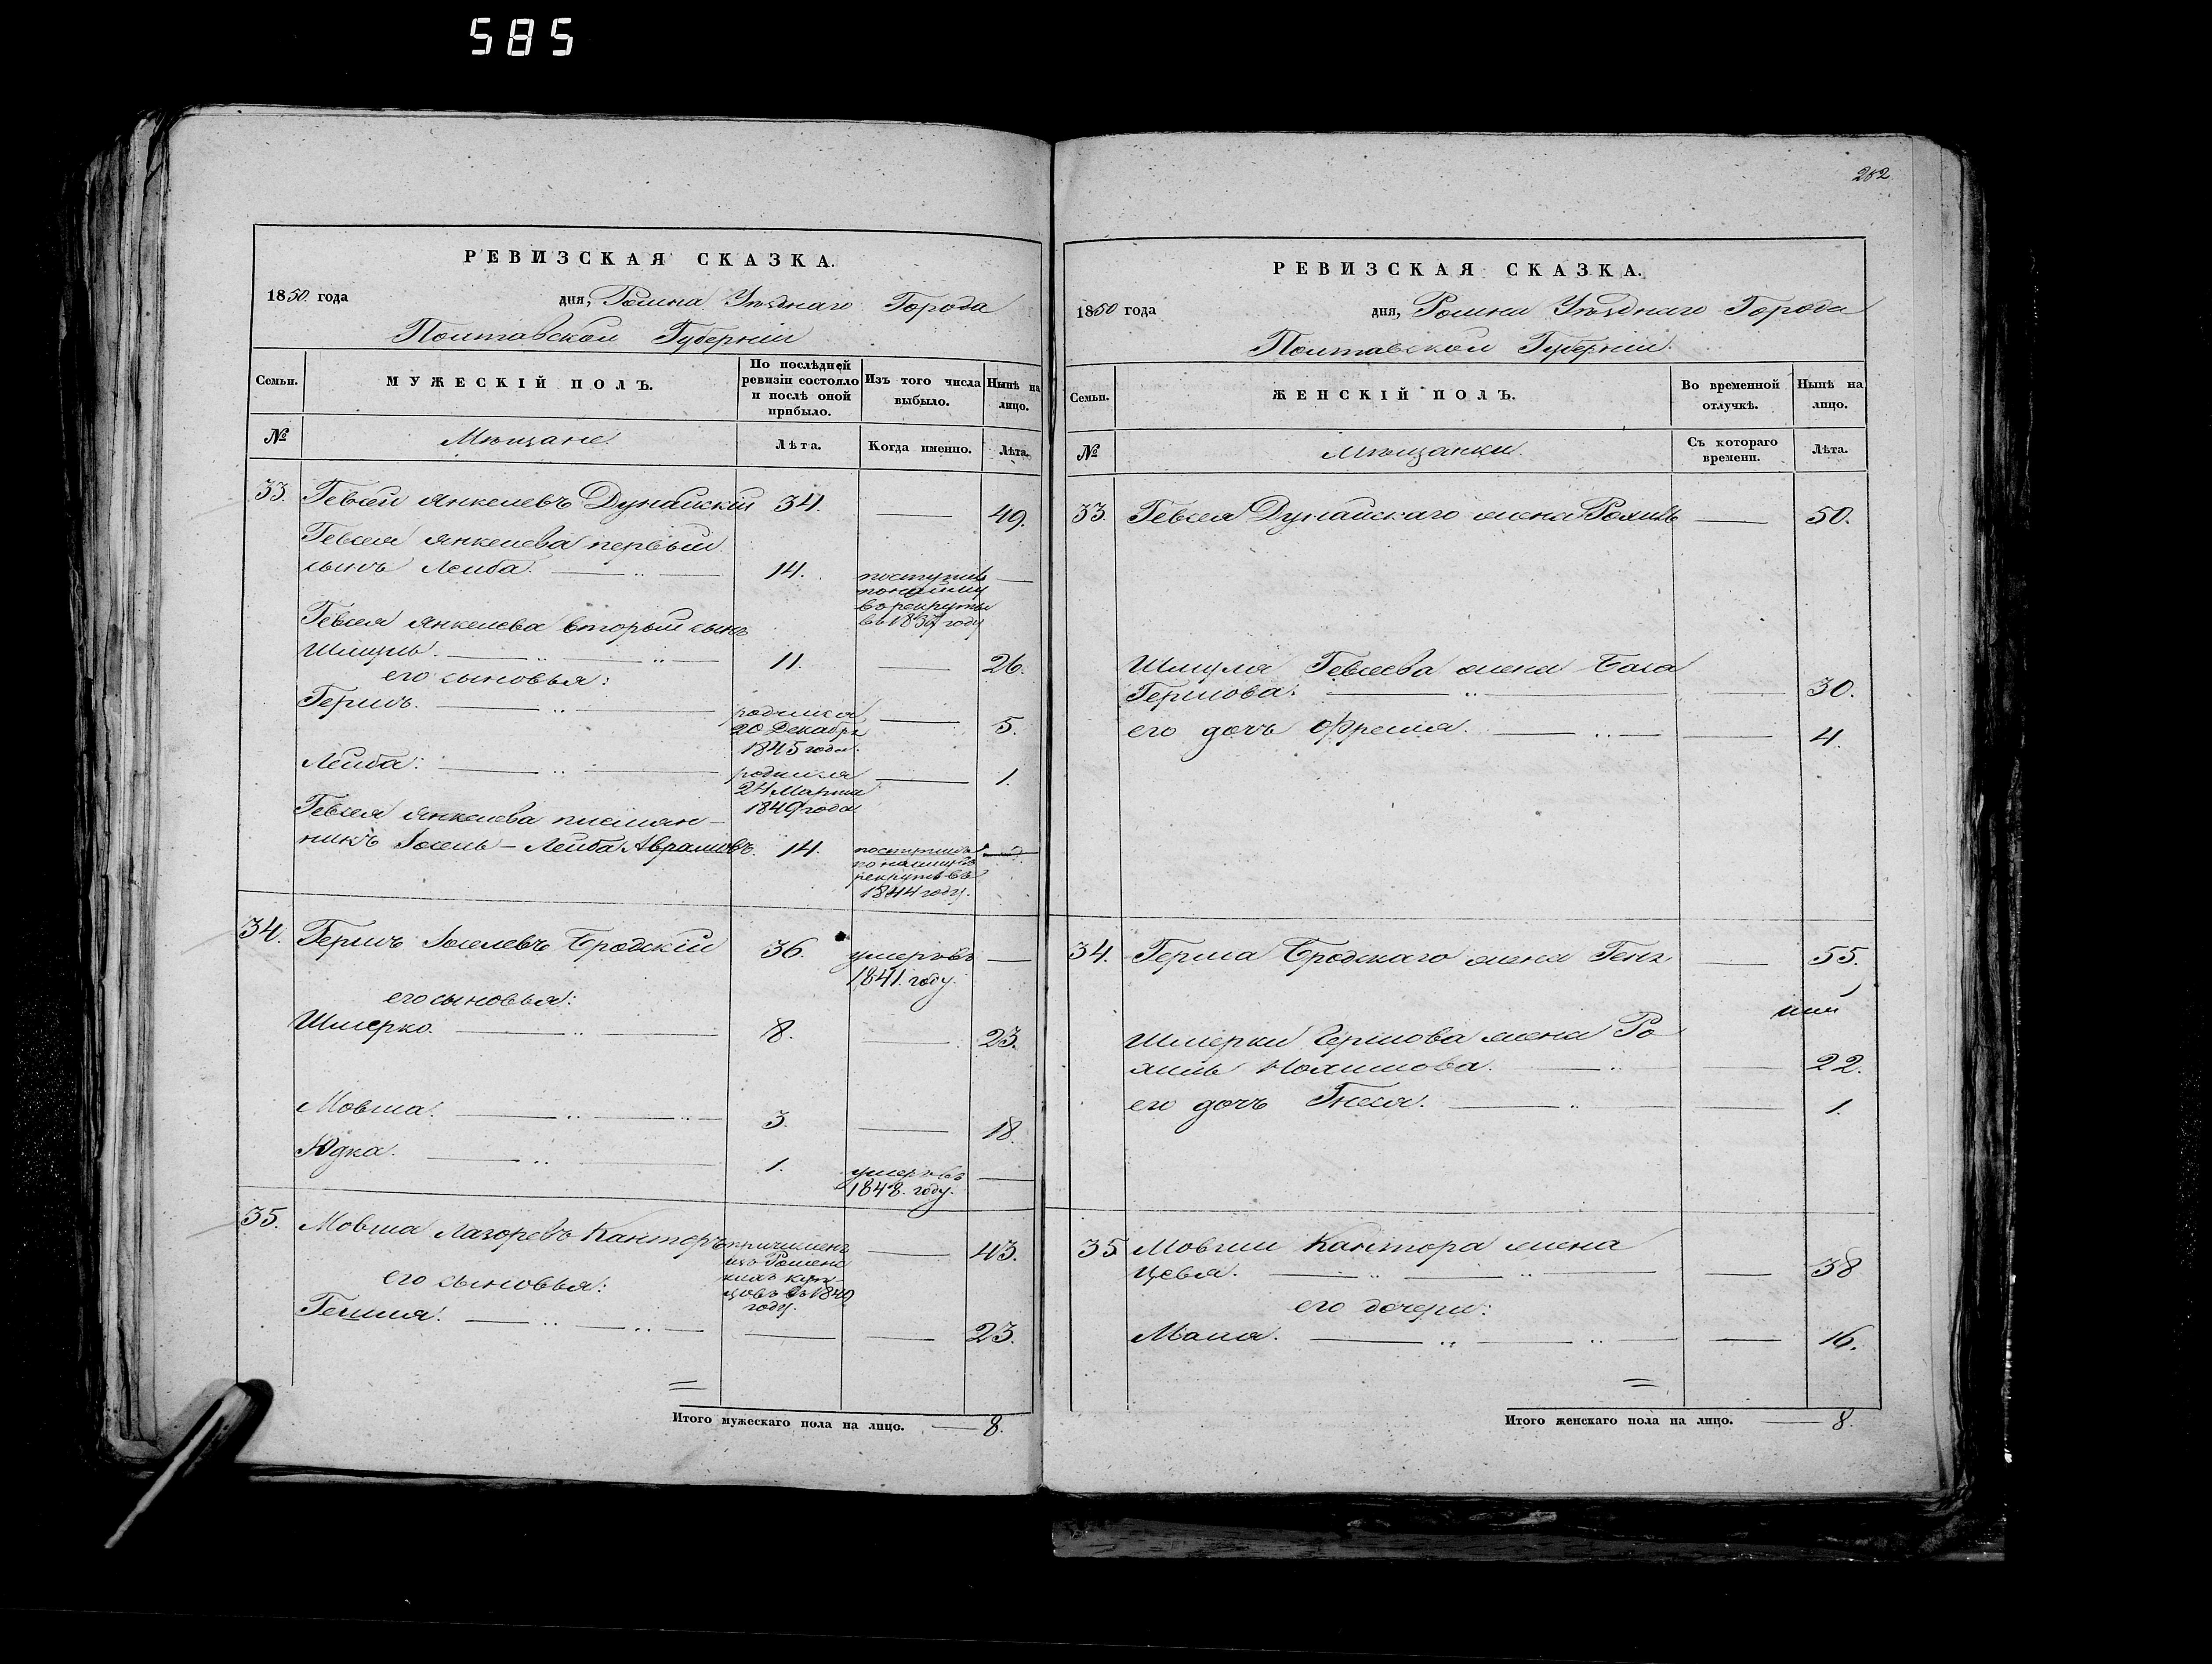 585
РЕВИЗСКАЯ СКАЗКА.
1850 года дня, Ромна Уѣзднаго Города
Полтавской Губерніи
Семьи. МУЖЕСКІЙ ПОЛЪ. По послѣдней ревизіи состояло и послѣ оной прибыло. Изъ того числа выбыло. Нынѣ на лицо.
№ Мѣщане. Лѣта. Когда именно. Лѣта.
33. Гевсей Янкелевъ Дунайскій 34. 49.
Гевсея Янкелева первый
сынъ Лейба. 14. поступилъ
по найму
въ рекруты
въ 1837 году
Гевсея Янкелева второй сынъ
Шмуль. 11. 26.
его сыновья:
Гершъ. родился 5.
20 Декабря
1845 года.
Лейба: родился 1.
24 Марта
1849 года
Гевсея Янкелева племян-
никъ Іосель-Лейба Аврамовъ. 14. поступилъ
по найму въ
рекруты въ
1844 году.
34. Гершъ Іоселевъ Бродскій 36. умеръ въ
1841. году.
его сыновья:
Шмерко. 8. 23.
Мовша. 3. 18.
Юдка. 1. умеръ въ
1848. году.
35. Мовша Лазоревъ Канторъ причисленъ 43.
изъ Роменс
кихъ куп-
цовъ въ 1849
году.
его сыновья:
Гешия. 23.
Итого мужескаго пола на лицо. 8.
282
РЕВИЗСКАЯ СКАЗКА.
1850 года дня, Ромна Уѣзднаго Города
Полтавской Губерніи.
Семьи. ЖЕНСКІЙ ПОЛЪ. Во временной отлучкѣ. Нынѣ на лицо.
№ Мѣщанки. Съ котораго времени. Лѣта.
33. Гевсея Дунайскаго жена Рохиль 50.
Шмуля Гевсеева жена Баса
Гершова. 30.
его дочь Фрейма. 4.
34. Герша Бродскаго жена Геня 55.
Шмерки Гершова жена Ро
хиль Нохимова. 22.
его дочь Гнеся. 1.
35 Мовши Кантора жена
Цевья. 38
его дочери:
Маша. 16.
Итого женскаго пола на лицо. 8.